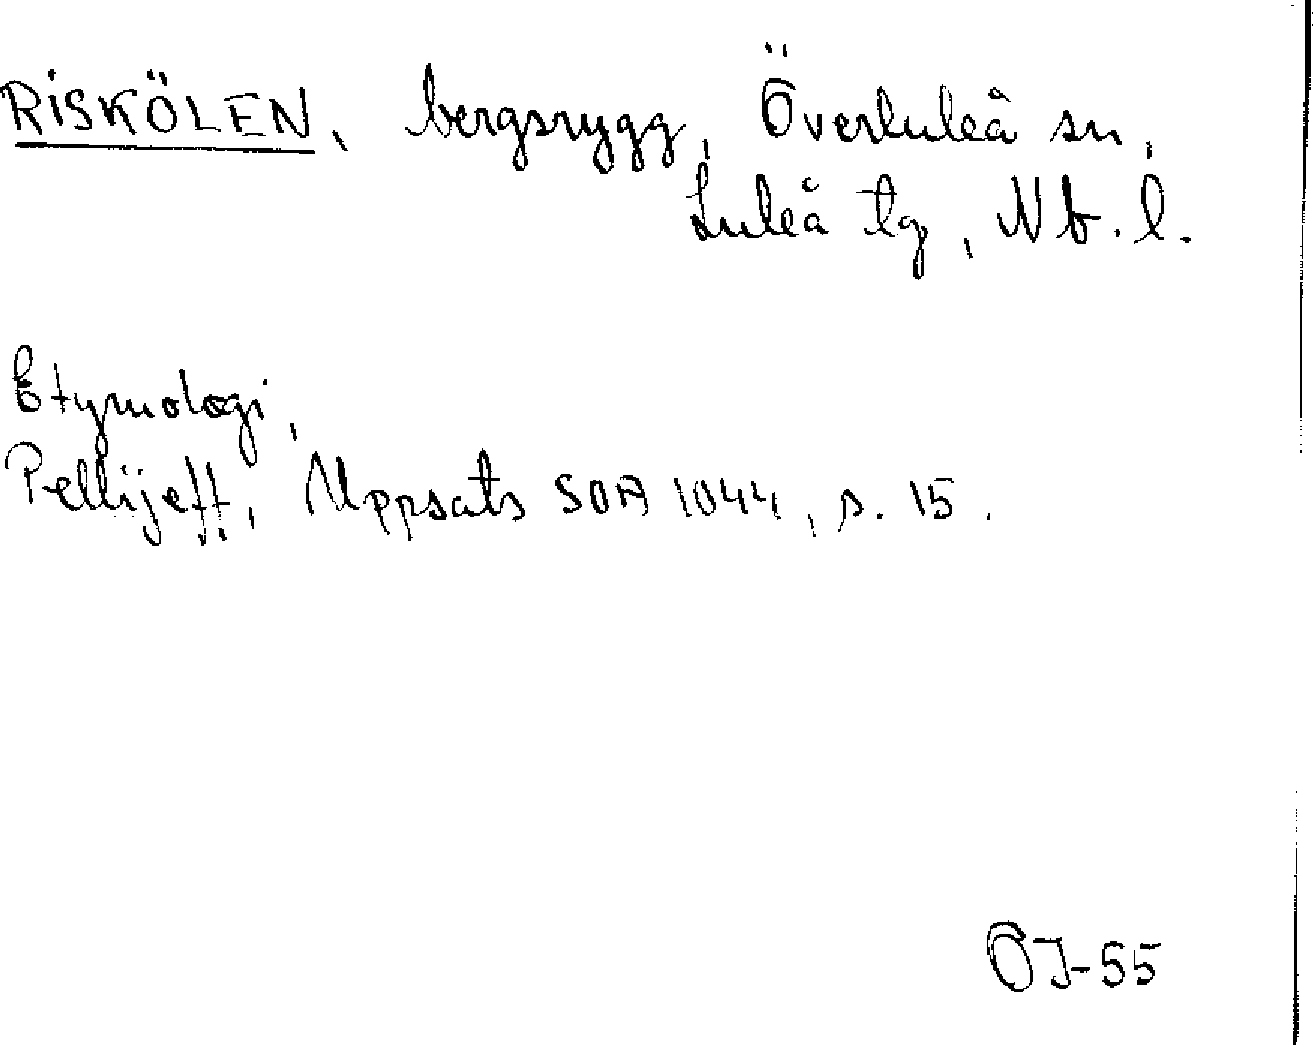 RISKÖLEN, bergsrygg, Överluleå sn,
Luleå tg, Nb. l.
Etymologi,
Pellijeff, Uppsats SOA 1044, s. 15.
OJ-55